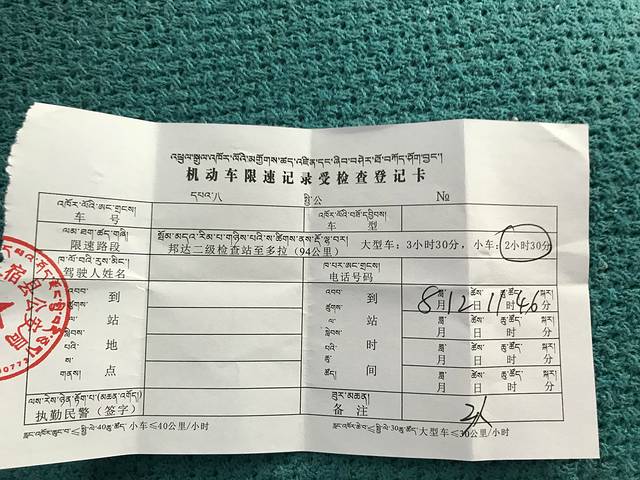 འཕྲུལ་སྒུལ་འཁོར་ལོའི་མགྱོགས་ཚད་འཛིན་དང་ཞིབ་བཤེར་ཐོ་བཀོད་ཤོག་བྱང་།
机动车限速记录受检查登记卡
དཔའ་ཤ སྤྱི公 №
འཁོར་ལོའི་ཨང་གྲངས།
车 号
འཁོར་ལོའི་བཟོ་དབྱིབས།
车 型
ལམ་ཐག་ཚད་གཞི།
限速路段
邦达二级检查站至多拉（94公里） 大型车：3小时30分，小车：2小时30分
ཁ་ལོ་བའི་རུས་མིང་།
驾驶人姓名
ཁ་པར་ཨང་གྲངས།
电话号码
到站地点
到站时间
8月12日11时46分
月 日 时 分
月 日 时 分
月 日 时 分
执勤民警（签字）
ཟུར་མཆན།
备 注
小车≤40公里/小时
大型车≤30公里/小时
宿县公安局